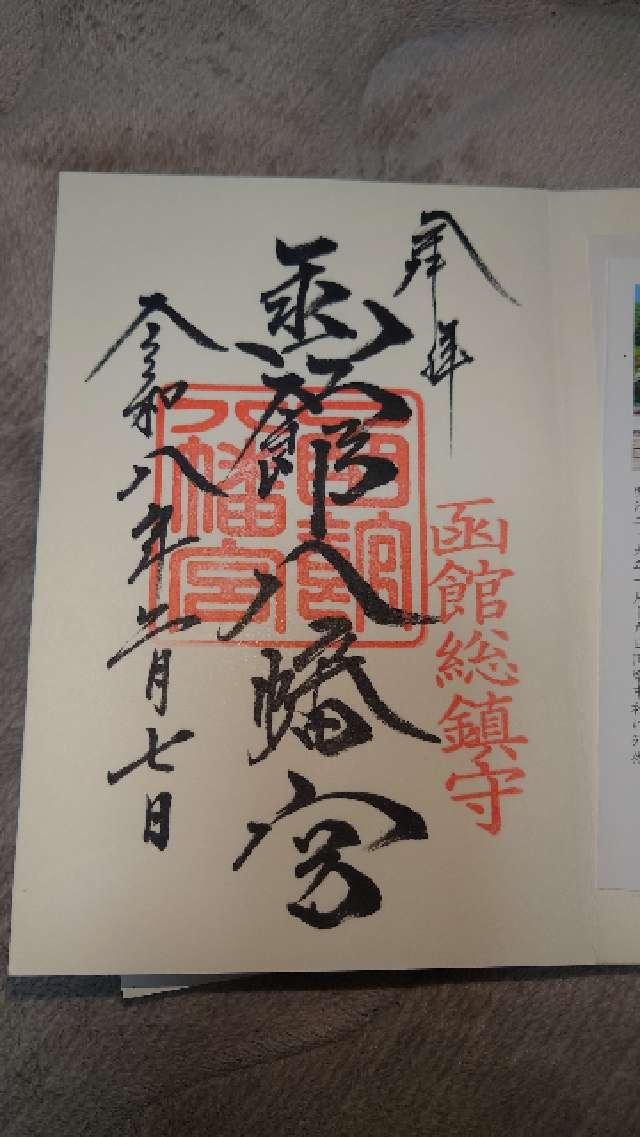 奉拝
函館総鎮守
函館八幡宮
函館八幡宮
令和八年二月七日